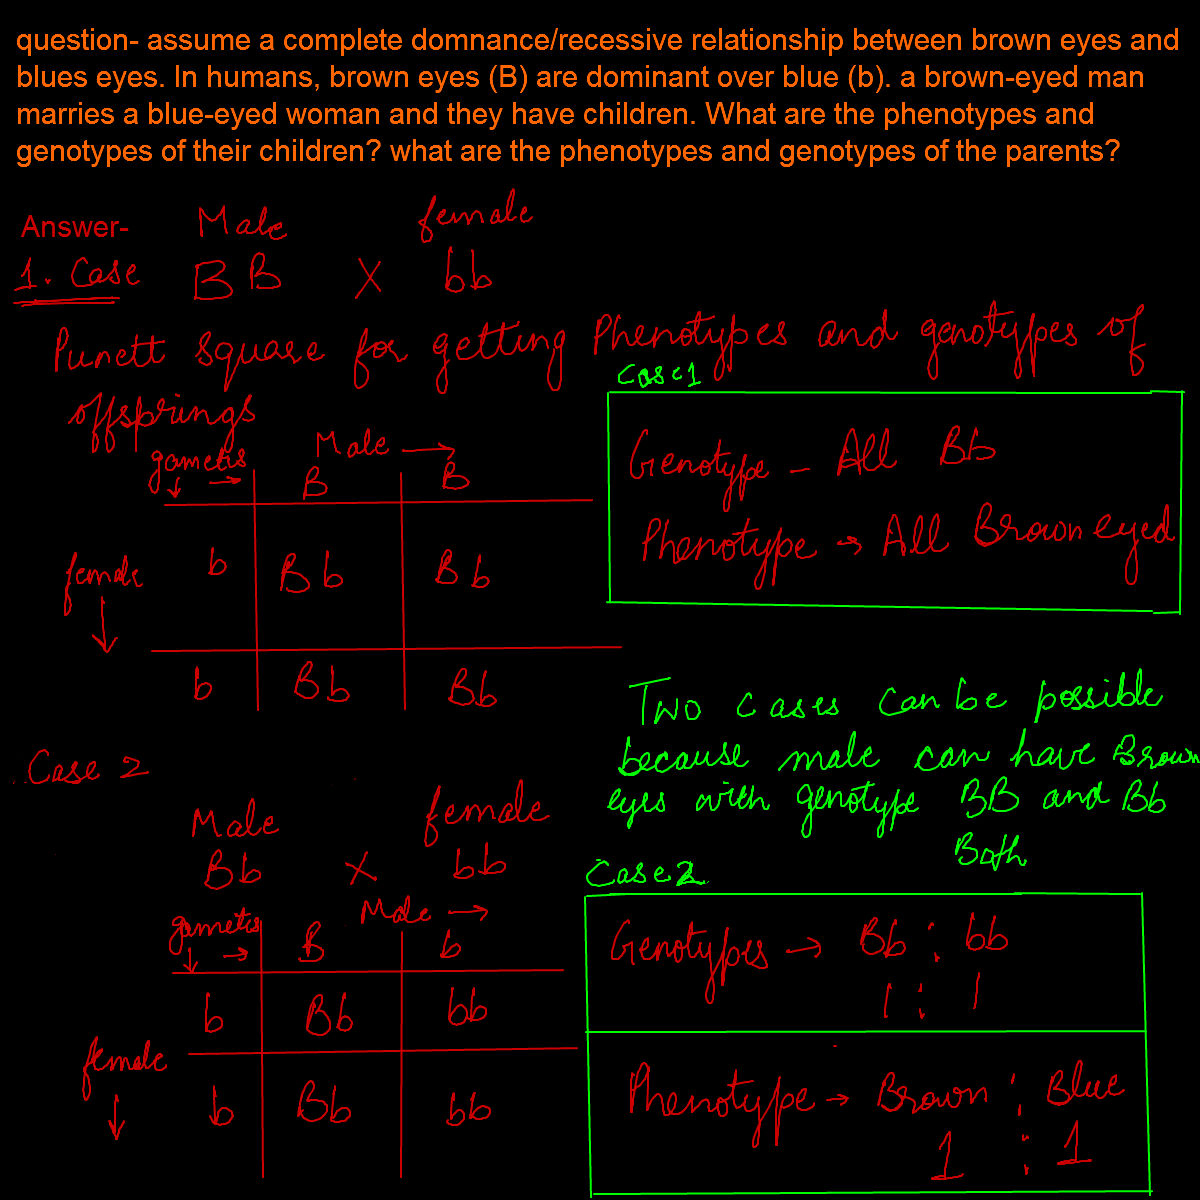 question- assume a complete domnance/recessive relationship between brown eyes and
blues eyes. In humans, brown eyes (B) are dominant over blue (b). a brown-eyed man
marries a blue-eyed woman and they have children. What are the phenotypes and
genotypes of their children? what are the phenotypes and genotypes of the parents?
Answer- Male female
1. Case BB X bb
Punett Square for getting Phenotypes and genotypes of
offsprings
gametes Male →
↓ → B B
female ↓ b Bb Bb
b Bb Bb
Case 1
Genotype - All Bb
Phenotype → All Brown eyed
Two cases can be possible
because male can have Brown
eyes with genotype BB and Bb
Both
Case 2
Male female
Bb X bb
gametes Male →
↓ → B b
b Bb bb
female ↓ b Bb bb
Case 2
Genotypes → Bb : bb
1 : 1
Phenotype → Brown : Blue
1 : 1